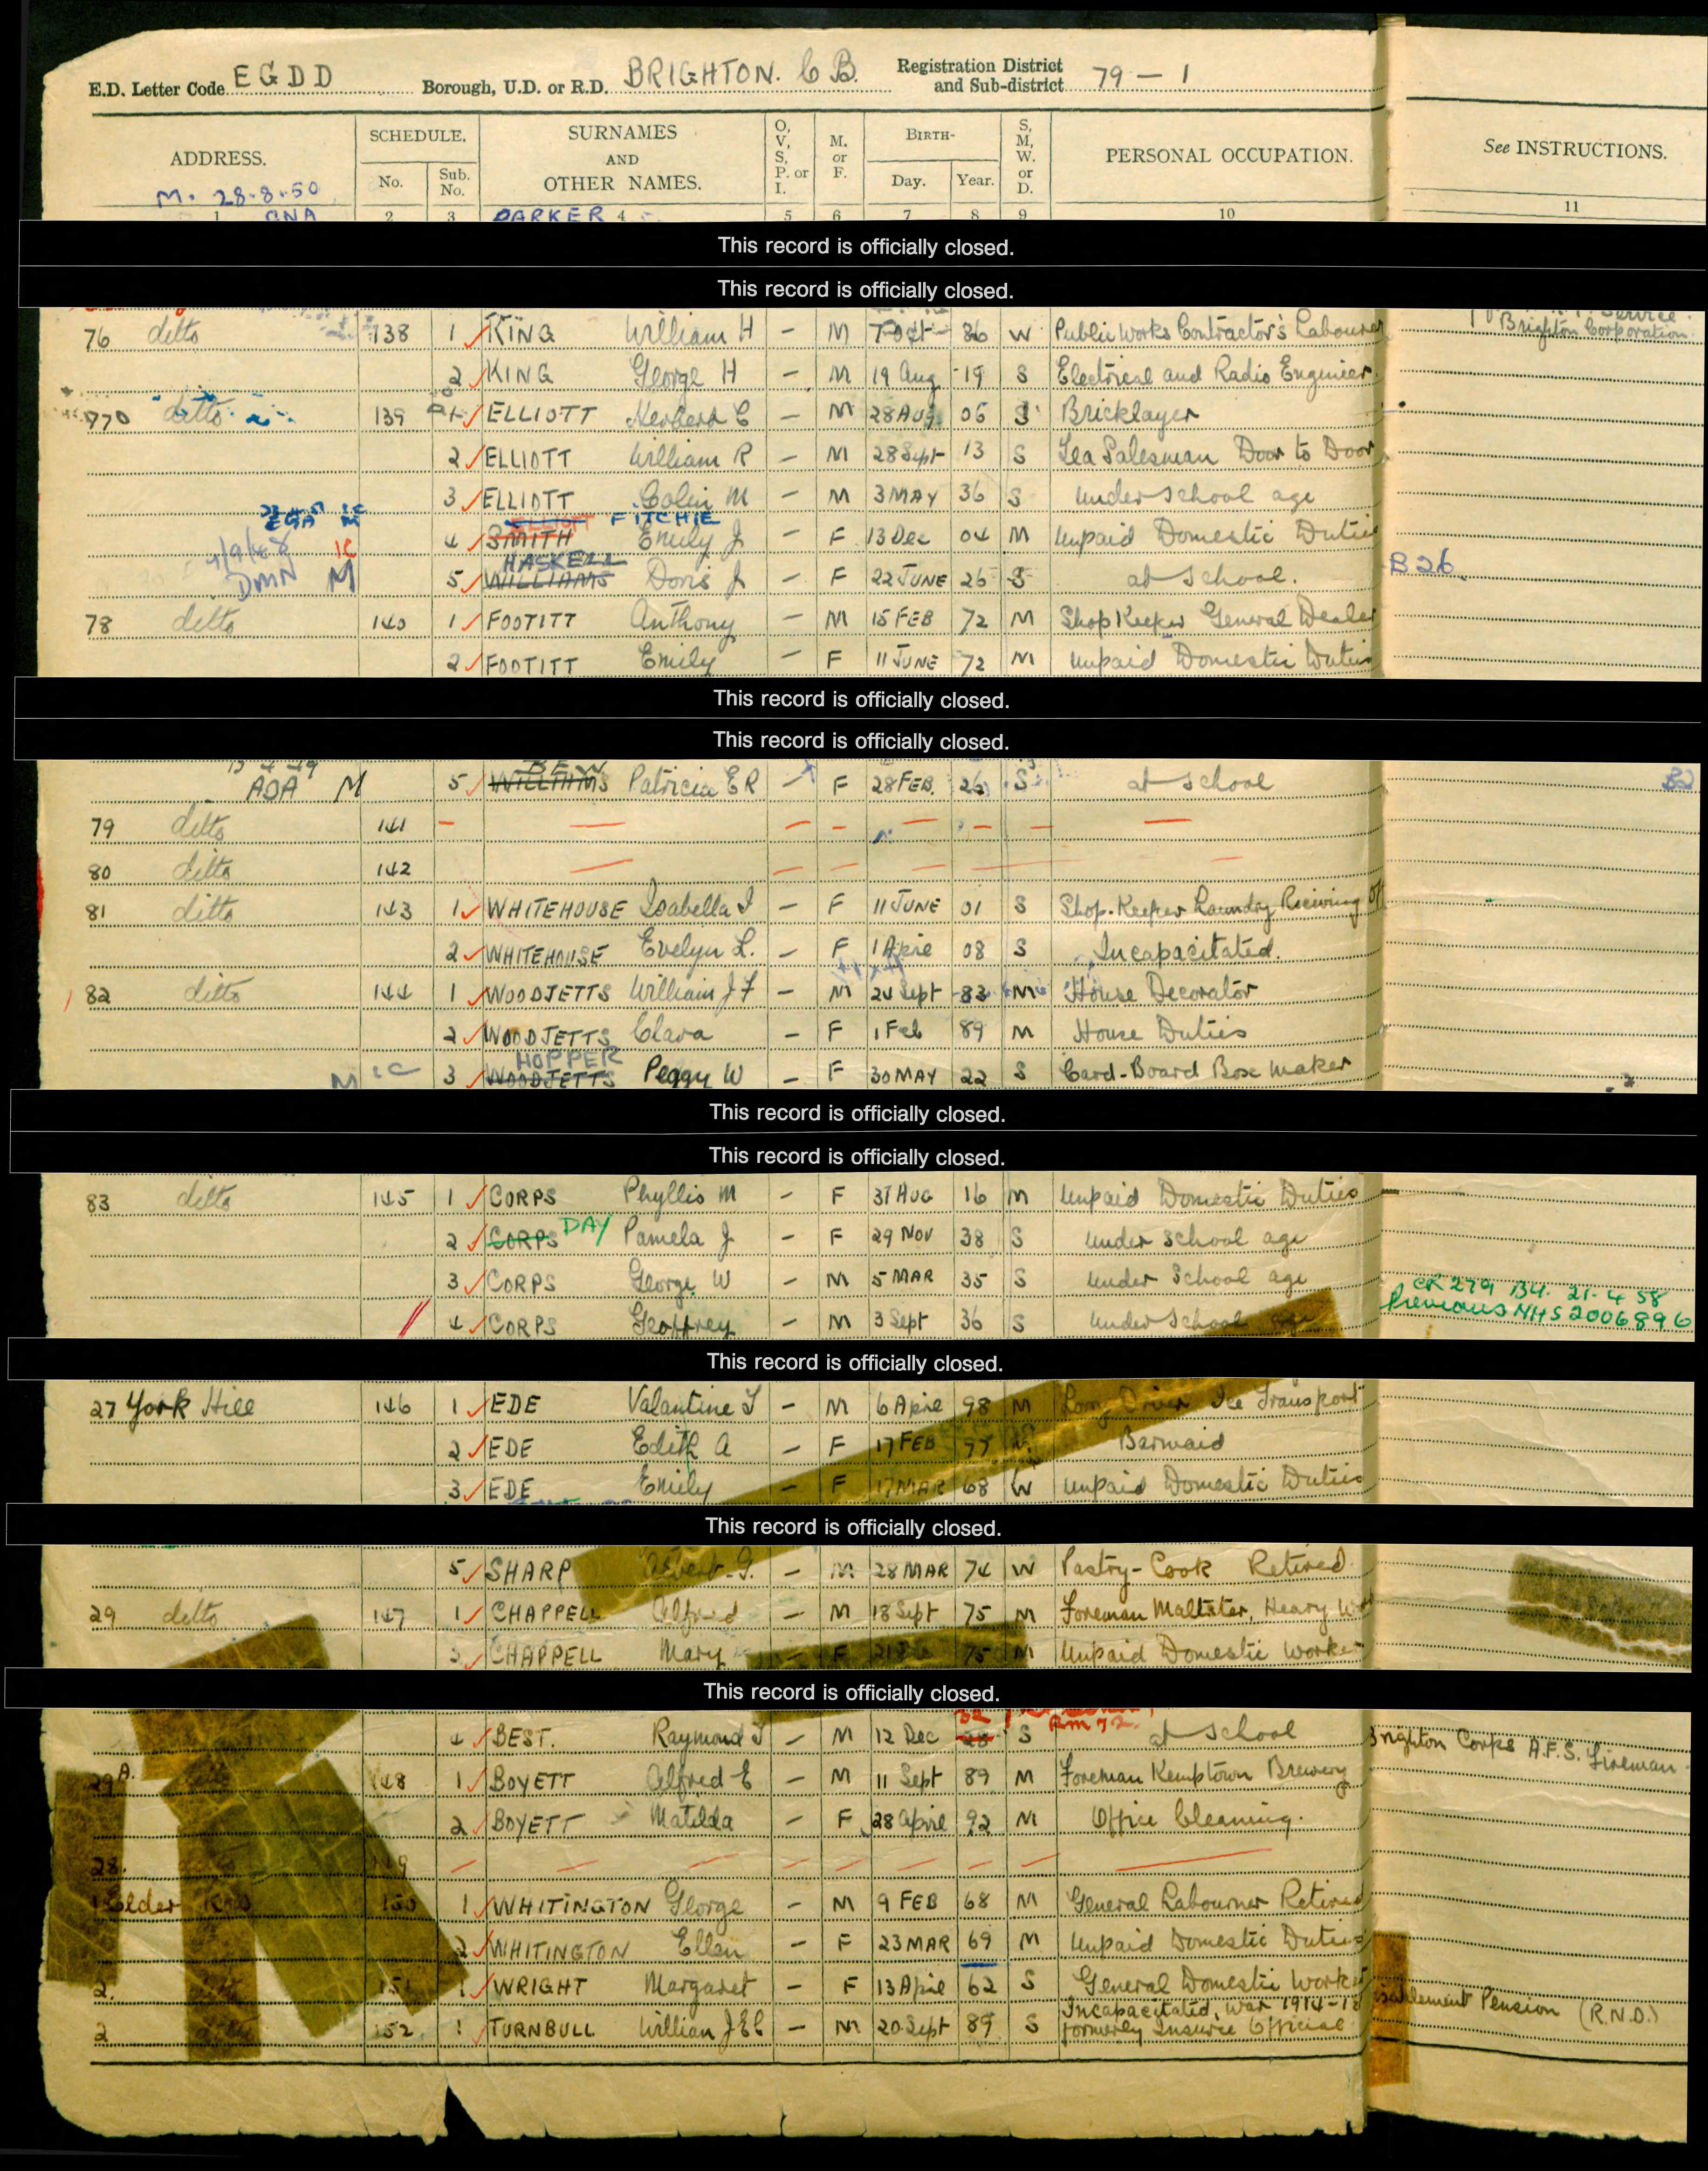 E.D. Letter Code EGDD Borough, U.D. or R.D. BRIGHTON. C B. Registration District and Sub-district 79 - 1
ADDRESS. SCHEDULE. No. Sub. No. SURNAMES AND OTHER NAMES. O, V, S, P. or I. M. or F. BIRTH- Day. Year. S, M, W. or D. PERSONAL OCCUPATION. See INSTRUCTIONS.
M. 28-8-50
1 2 3 PARKER 4 5 6 7 8 9 10 11
This record is officially closed.
This record is officially closed.
76 ditto 138 1 KING William H - M 7 Oct 86 W Public Works Contractor's Labourer Brighton Corporation
2 KING George H - M 19 Aug 19 S Electrical and Radio Engineer
ditto 139 1 ELLIOTT Herbert C - M 28 AUG 06 S Bricklayer
2 ELLIOTT William R - M 28 Sept 13 S Tea Salesman Door to Door
3 ELLIOTT Colin M - M 3 MAY 36 S under school age
ELLIOTT FITCHIE
4 SMITH Emily J - F 13 Dec 04 M Unpaid Domestic Duties
DMN M HASKELL
5 WILLIAMS Doris J - F 22 JUNE 26 S at School. B26
78 ditto 140 1 FOOTITT Anthony - M 15 FEB 72 M Shop Keeper General Dealer
2 FOOTITT Emily - F 11 JUNE 72 M Unpaid Domestic Duties
This record is officially closed.
This record is officially closed.
ADA M 5 WILLIAMS Patricia E R - F 28 FEB. 26 S at school
79 ditto 141 -
80 ditto 142
81 ditto 143 1 WHITEHOUSE Isabella I - F 11 JUNE 01 S Shop-Keeper Laundry Receiving Off
2 WHITEHOUSE Evelyn L. - F 1 April 08 S Incapacitated.
82 ditto 144 1 WOODJETTS William J F - M 24 Sept 83 M House Decorator
2 WOODJETTS Clara - F 1 Feb 89 M House Duties
M IC HOPPER
3 WOODJETTS Peggy W - F 30 MAY 22 S Card-Board Box Maker
This record is officially closed.
This record is officially closed.
83 ditto 145 1 CORPS Phyllis M - F 31 AUG 16 M Unpaid Domestic Duties
2 CORPS DAY Pamela J - F 29 NOV 38 S under school age
3 CORPS George W - M 5 MAR 35 S under School age CR 279 BH. 21-4 58
4 CORPS Geoffrey - M 3 Sept 36 S under School age Previous NHS 2006896
This record is officially closed.
27 York Hill 146 1 EDE Valantine T - M 6 April 98 M Lorry Driver Ice Transport
2 EDE Edith A - F 17 FEB 97 M Barmaid
3 EDE Emily - F 17 MAR 68 W Unpaid Domestic Duties
This record is officially closed.
5 SHARP Albert G. - M 28 MAR 74 W Pastry-Cook Retired
29 ditto 147 1 CHAPPELL Alfred - M 18 Sept 75 M Foreman Maltster, Heavy
3 CHAPPELL Mary - F 21 Dec 75 M Unpaid Domestic Worker
This record is officially closed.
4 BEST. Raymond T - M 12 Dec 28 S at school Brighton Corps A.F.S. Fireman
29A. 148 1 BOYETT Alfred E - M 11 Sept 89 M Foreman Kemptown Brewery
2 BOYETT Matilda - F 28 April 92 M Office Cleaning.
28. 149
1 Elder Row 150 1 WHITINGTON George - M 9 FEB 68 M General Labourer Retired
2 WHITINGTON Ellen - F 23 MAR 69 M Unpaid Domestic Duties
2. ditto 151 1 WRIGHT Margaret - F 13 April 62 S General Domestic Worker
2 ditto 152 1 TURNBULL William J E C - M 20 Sept 89 S Incapacitated, War 1914-18 formerly Insurce Official Pension (R.N.D.)